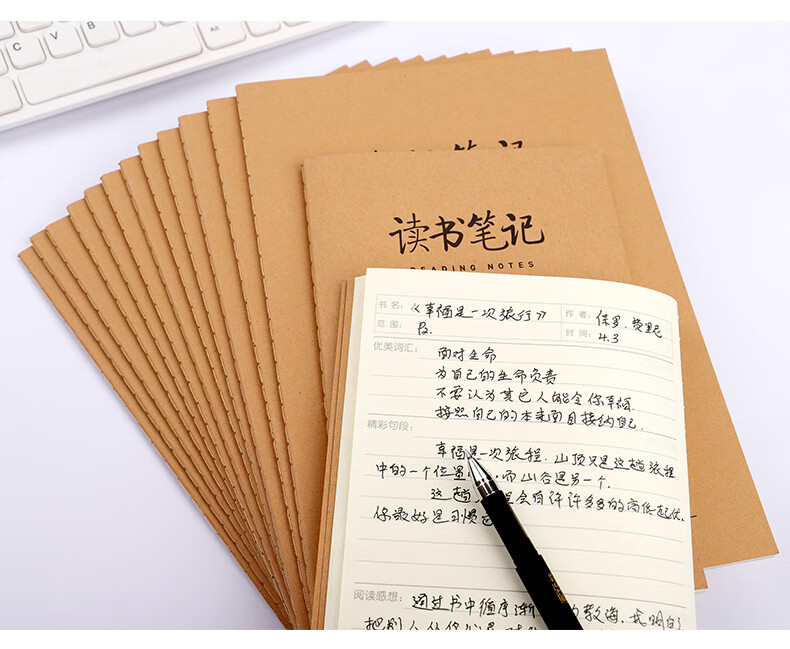 C
V
B
N
M
Alt
笔记
读书笔记
READING NOTES
书 名: 《幸福是一次旅行》
作 者: 保罗.费里尼
范 围: 段.
时 间: 4.3
优美词汇:
面对生命
为自己的生命负责
不要认为其它人能令你幸福.
按照自己的本来面目接纳自己.
精彩句段:
幸福是一次旅程, 山顶只是这趟旅程
中的一个位置 而山谷是另一个.
这趟 会有许许多多的高低起伏.
你最好是习惯
阅读感想: 通过书中循序渐 的教诲,
把别人